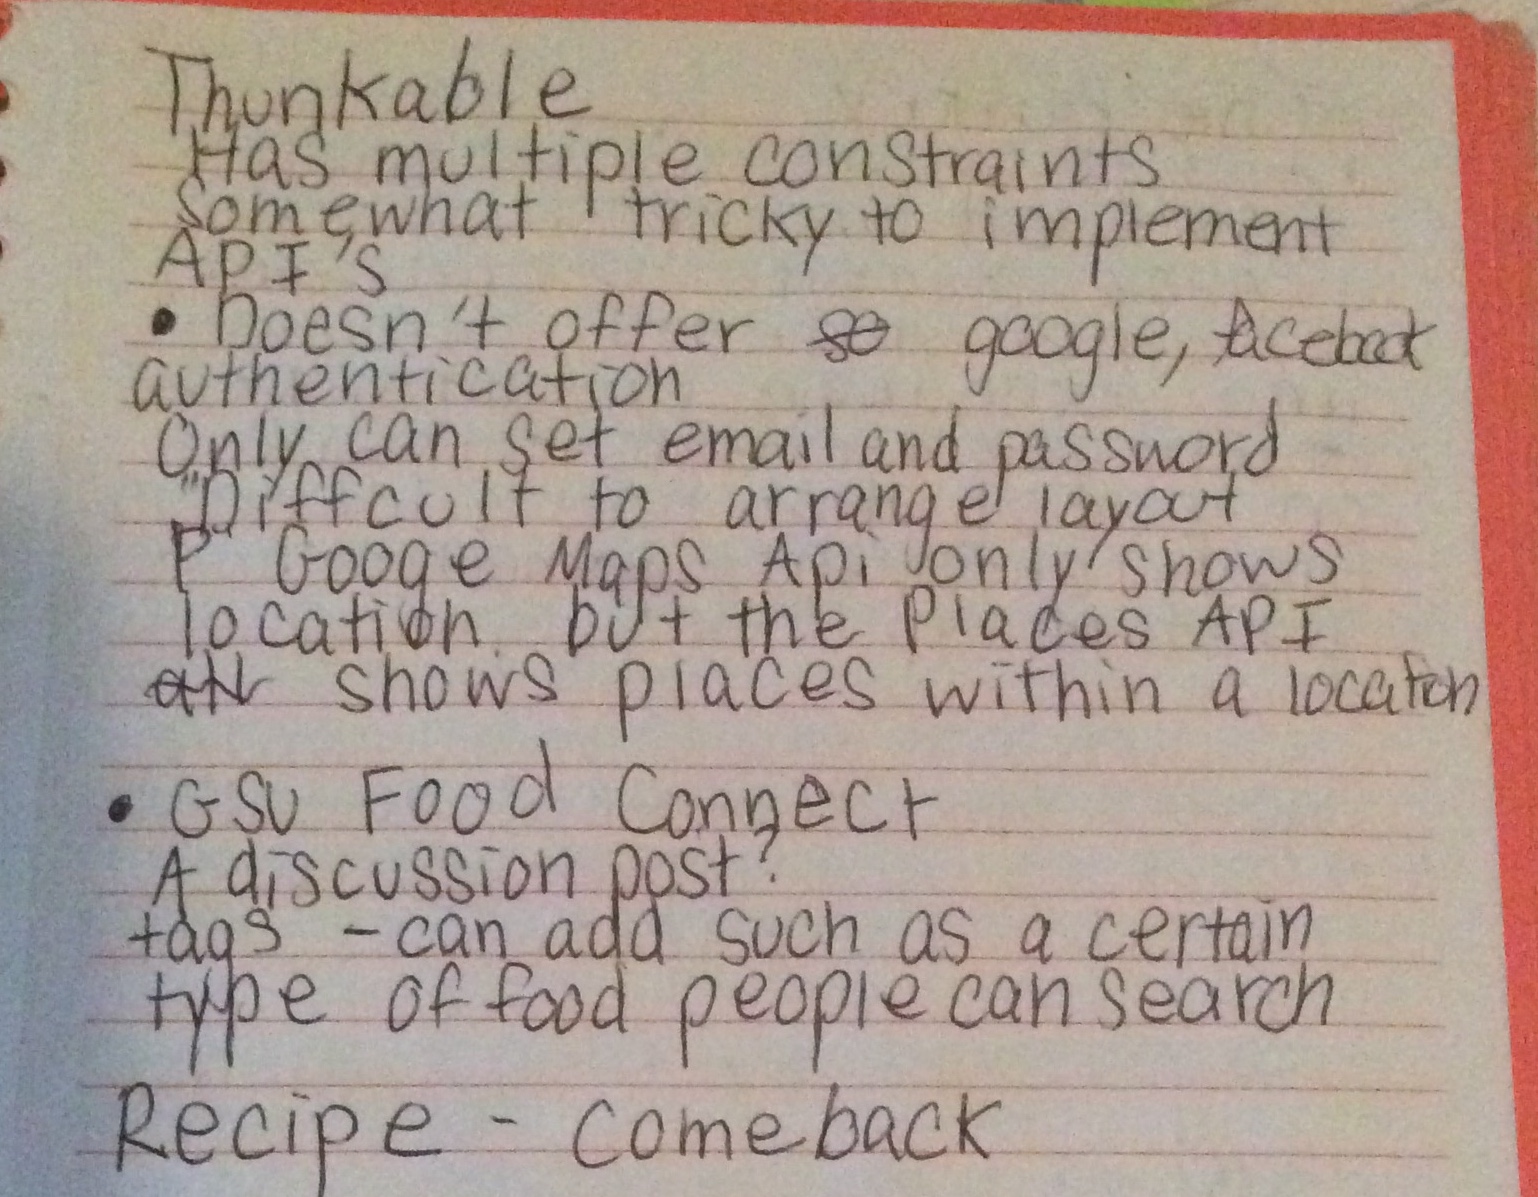 Thunkable
Has multiple constraints
Somewhat tricky to implement
API's
• Doesn't offer google, facebook
authentication
Only can set email and password
"Diffcult to arrange layout
P Googe Maps Api only shows
location but the Places API
shows places within a location
• GSU Food Connect
A discussion post?
tags - can add such as a certain
type of food people can search
Recipe - comeback